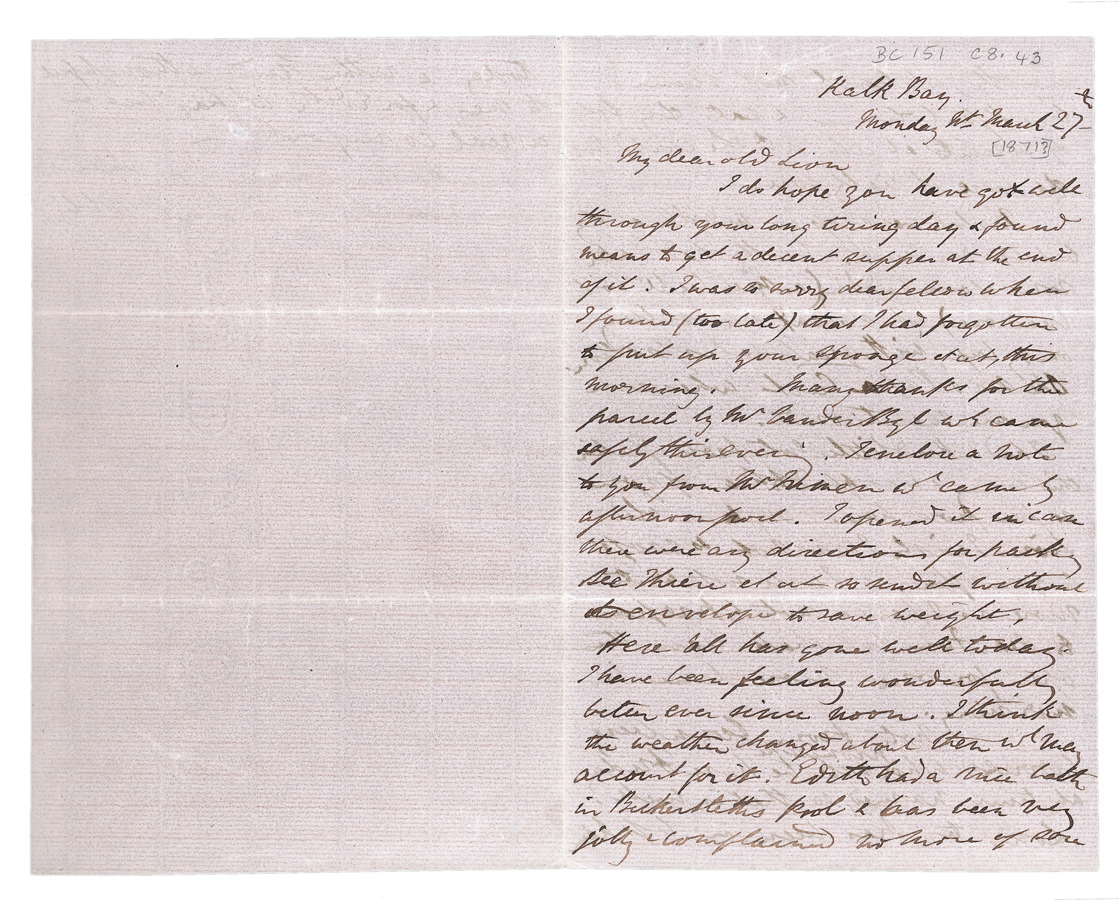 BC 151 C8. 43
Kalk Bay.
Monday Nt March 27th
[1871?]
My dear old Lion
I do hope you have got well
through your long tiring day & found
means to get a decent supper at the end
of it. I was so sorry dear fellow when
I found (too late) that I had forgotten
to put up your sponge et at, this
morning. Many thanks for the
parcel by Mr. VanderByl wh came
safely this evening. I enclose a note
to you from Mr wh came by
afternoon post. I opened it in case
there were any directions for packing
see et at so send it without
its envelope to save weight,
Here all has gone well today.
I have been feeling wonderfully
better ever since noon. I think
the weather changed about then wh may
account for it. Edith had a nice bath
in Bickersteths Pool & has been very
jolly & complained no more of sore